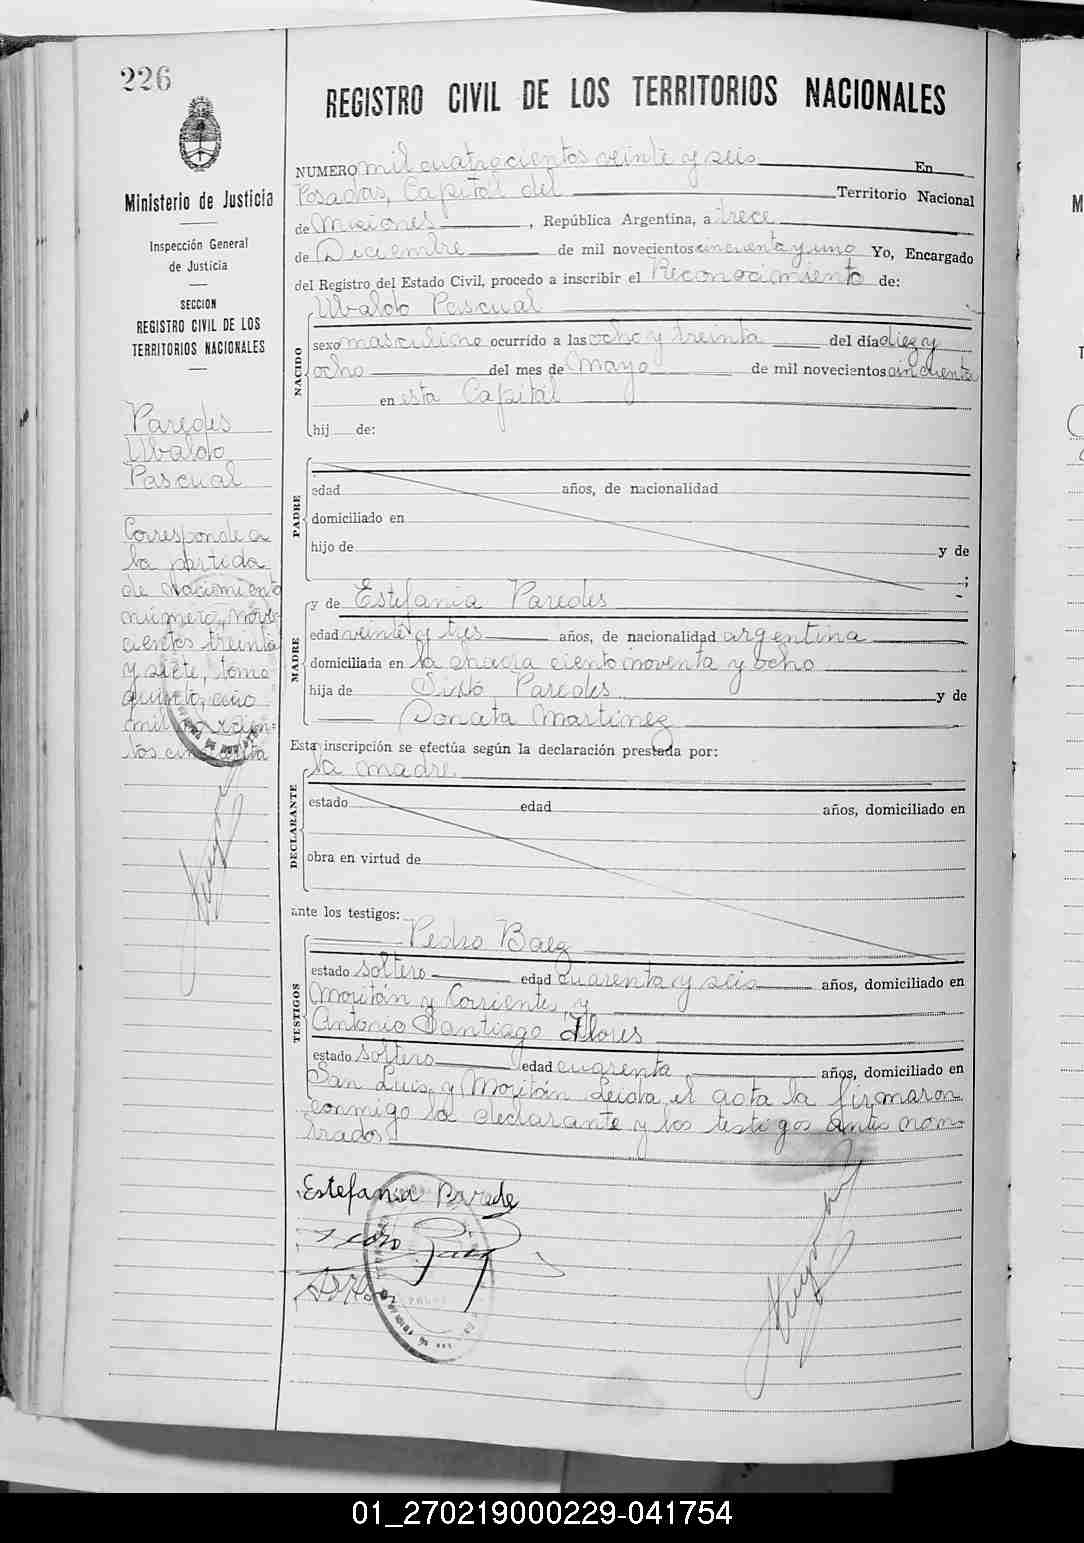 226
Ministerio de Justicia
Inspección General
de Justicia
SECCION
REGISTRO CIVIL DE LOS
TERRITORIOS NACIONALES
Paredes
Ubaldo
Pascual
Corresponde a
la partida
de Nacimiento
número, nove-
cientos treinta
y siete, tomo
quinto, año
mil novecien-
tos cincuenta
REGISTRO CIVIL DE LOS TERRITORIOS NACIONALES
NUMERO mil cuatrocientos veinte y seis En
Posadas, Capital del Territorio Nacional
de Misiones, República Argentina, a trece
de Diciembre de mil novecientos cincuenta y uno Yo, Encargado
del Registro del Estado Civil, procedo a inscribir el Reconocimiento de:
Ubaldo Pascual
NACIDO
sexo masculino ocurrido a las ocho y treinta del día diez y
ocho del mes de Mayo de mil novecientos cincuenta
en esta Capital
hij de:
PADRE
edad años, de nacionalidad
domiciliado en
hijo de y de
;
MADRE
y de Estefania Paredes
edad veinte y tres años, de nacionalidad argentina
domiciliada en la chacra ciento noventa y ocho
hija de Sixto Paredes y de
Donata Martinez
Esta inscripción se efectúa según la declaración prestada por:
la madre
DECLARANTE
estado edad años, domiciliado en
obra en virtud de
ante los testigos:
Pedro Baez
TESTIGOS
estado soltero edad cuarenta y seis años, domiciliado en
Moritán y Corrientes y
Antonio Santiago Flores
estado soltero edad cuarenta años, domiciliado en
San Luis y Moritán Leida el acta la firmaron
conmigo la declarante y los testigos antes nom-
brados
Estefania Parede
Pedro Baez
01_270219000229-041754